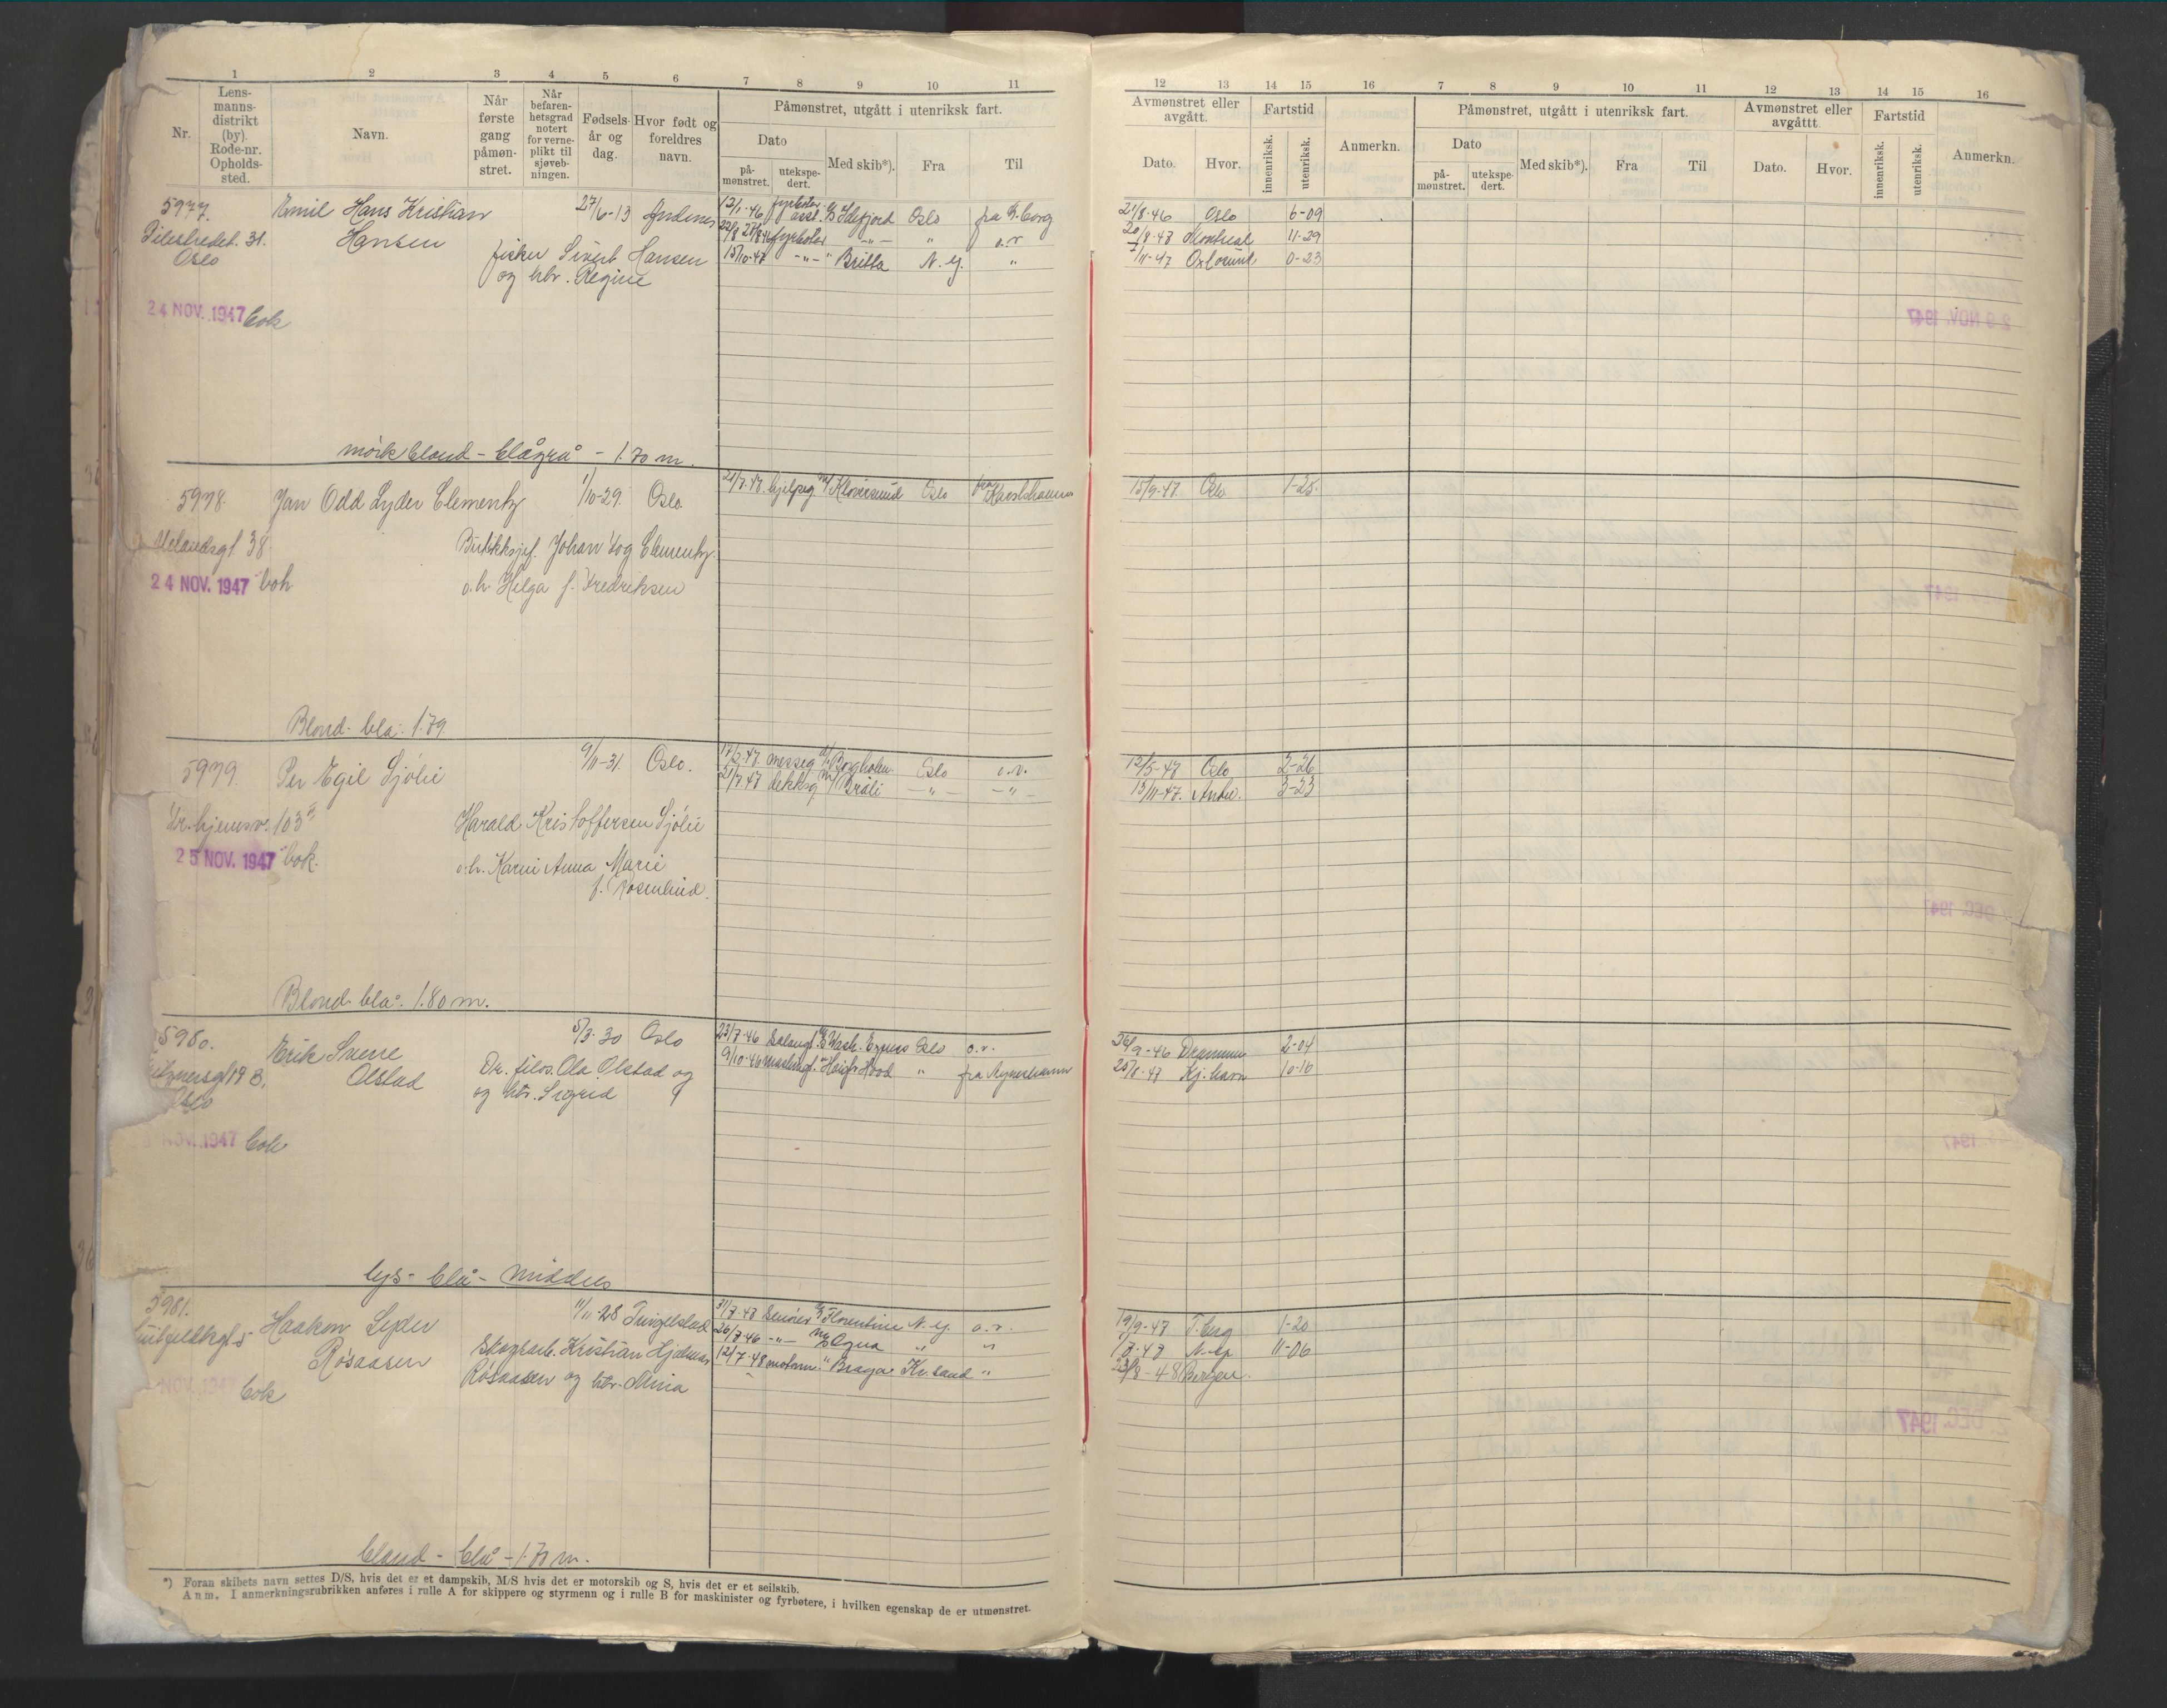 1 2 3 4 5 6 7 8 9 10 11
Nr. Lens-manns-distrikt (by). Rode-nr. Opholds-sted. Navn. Når første gang påmøn-stret. Når befaren-hetsgrad notert for verne-plikt til sjøveb-ningen. Fødsels-år og dag. Hvor født og foreldres navn.
Påmønstret, utgått i utenriksk fart.
Dato
på-mønstret. utekspe-dert. Med skib*). Fra Til
5977. Emil Hans Kristian 27/6-13 Andenes 12/1-46 fyrbøter asst. D/S Idefjord Oslo fra G.borg
Pilestredet. 31. Hansen 22/8 28/8 46 fyrbøter -"- " o.r
Oslo fisker Sivert Hansen 15/10-47 -"- " Britta N.Y. "
og htr. Regine
24 NOV. 1947 bok
mörk blond - blågrå - 1.70 m.
5978. Jan Odd Lyder Clementz 1/10-29. Oslo 21/7.47. hjelpsg M/ Oslo fra Karlshamn
38. Johan Clementz
24 NOV. 1947 bok o.h. Helga f. Fredriksen
Blond- blå: 1.79.
5979. Per Egil Sjölie 9/11-31 Oslo. 18/2.47. messeg D/ Borgholm Oslo o.r.
21/7.47 dekksg M/ Bråli -"- -"-
103 Harald Kristoffersen Sjölie
25 NOV. 1947 bok. o.h. Karin Anna Marie
f. Rosenlind.
Blond- blå: 1.80 m.
5980. Erik Sverre 5/3-30 Oslo 23/7-46 Salongg. D/S Wash. Express Oslo o.r.
19 B. Olstad Dr. filos. Ola Olstad og 9/10-46 maskingt. " Høegh Hood " fra Nynäshamn
Oslo og htr. Sigrid
NOV. 1947 bok
lys - blå - middels
5981. Haakon Lyder 11/11-28 Tingelstad 31/7-47 D/S Florentine N.Y. o.r.
Røsaasen Skogsarb. Kristian Hjalmar 26/7-46 -"- M/S Ogna " "
Røsaasen og htr. Anna 12/7-48 motorm. " Braga Kr.sand "
NOV. 1947 bok
blond - blå - 1.70 m.
*) Foran skibets navn settes D/S, hvis det er et dampskib, M/S hvis det er motorskib og S, hvis det er et seilskib.
Anm. I anmerkningsrubrikken anføres i rulle A for skippere og styrmenn og i rulle B for maskinister og fyrbøtere, i hvilken egenskap de er utmønstret.
12 13 14 15 16 7 8 9 10 11 12 13 14 15 16
Avmønstret eller avgått. Fartstid Anmerkn. Påmønstret, utgått i utenriksk fart. Avmønstret eller avgåttt Fartstid Anmerkn.
Dato. Hvor. innenriksk. utenriksk. Dato på-mønstret. utekspe-dert. Med skib*). Fra Til Dato. Hvor. innenriksk. utenriksk.
21/8-46 Oslo 6-09
20/8-47 Montreal 11-29
7/11-47 Oxlösund 0-23
15/9-47. Oslo 1-25.
12/5-47 Oslo 2-26
13/11-47. Antw. 3-23
26/9-46 Drammen 2-04
25/8-47 Kj.havn 10-16
19/9-47 T.berg 1-20
1/7-47 N.Y. 11-06
23/8-48 Bergen.